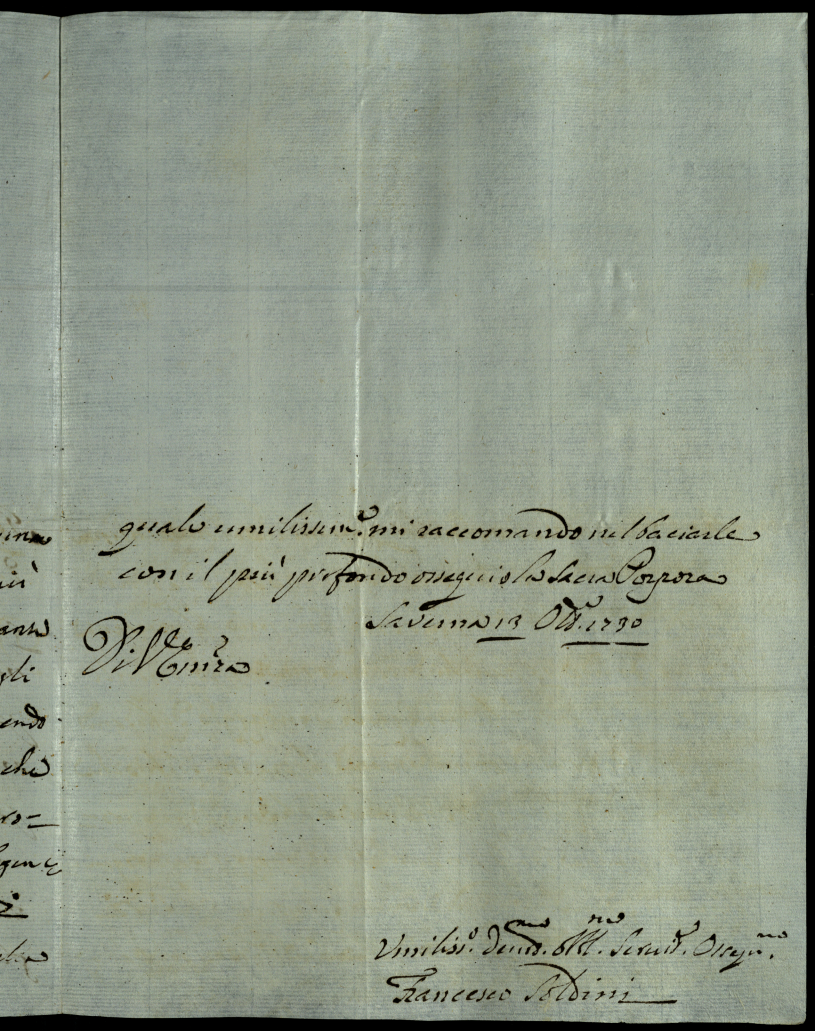 quale umilissim.e mi raccomando nel baciarle
con il più profondo ossequio la Sacra Porpora
13 Ott.e 1790
Di V Em.za
Umiliss.o Devo.mo Obl.mo Servit.e Osseq.mo
Francesco Soldini
più
gli
endo
che